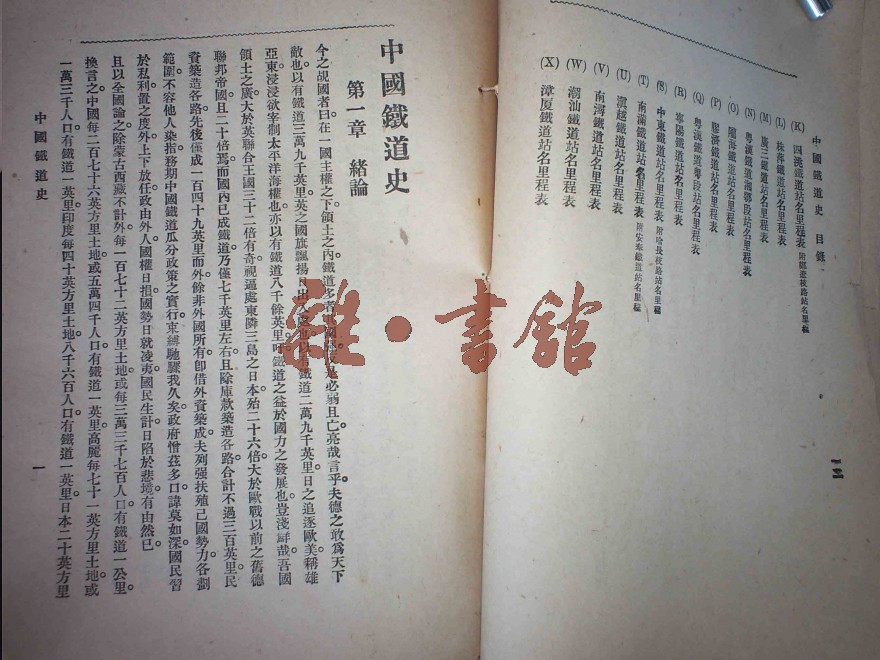 中國鐵道史 目錄
(K) 四洮鐵道站名里程表 附鄭澄枝路站名里程
(L) 株萍鐵道站名里程表
(M) 廣三鐵道站名里程表
(N) 粵漢鐵道湘鄂段站名里程表
(O) 隴海鐵道站名里程表
(P) 膠濟鐵道站名里程表
(Q) 粵漢鐵道粵段站名里程表
(R) 寧陽鐵道站名里程表
(S) 中東鐵道站名里程表 附哈長枝路站名里程
(T) 南滿鐵道站名里程表 附安奉鐵道站名里程
(U) 滇越鐵道站名里程表
(V) 南潯鐵道站名里程表
(W) 潮汕鐵道站名里程表
(X) 漳厦鐵道站名里程表
中國鐵道史
第一章 緒論
今之覘國者曰在一國主權之下領土之內鐵道多者必弱且亡亮哉言乎夫德之敢爲天下
敵也以有鐵道三萬九千英里英之國旗飄揚日出入處也以有鐵道二萬九千英里日之追逐歐美稱雄
亞東浸浸欲宰制太平洋海權也亦以有鐵道八千餘英里吁鐵道之益於國力之發展也豈淺鮮哉吾國
領土之廣大於英聯合王國三十二倍有奇視逼處東隣三島之日本殆二十六倍大於歐戰以前之舊德
聯邦帝國且二十倍焉而國內已成鐵道乃僅七千英里左右且除庫款築造各路合計不過三百英里民
資築造各路先後僅成一百四十九英里而外餘非外國所有卽借外資築成夫列强扶殖己國勢力各劃
範圍不容他人染指務期中國鐵道瓜分政策之實行束縛馳驟我久矣政府憎茲多口諱莫如深國民習
於私利置之度外上下放任政由外人國權日損國勢日就凌夷國民生計日陷於悲境有由然已
且以全國論之除蒙古西藏不計外每一百七十二英方里土地或每三萬三千七百人口有鐵道一公里
換言之中國每二百七十六英方里土地或五萬四千人口有鐵道一英里高麗每七十一英方里土地或
一萬三千人口有鐵道一英里印度每四十英方里土地八千六百人口有鐵道一英里日本二十英方里
中國鐵道史
一
雜·書舘